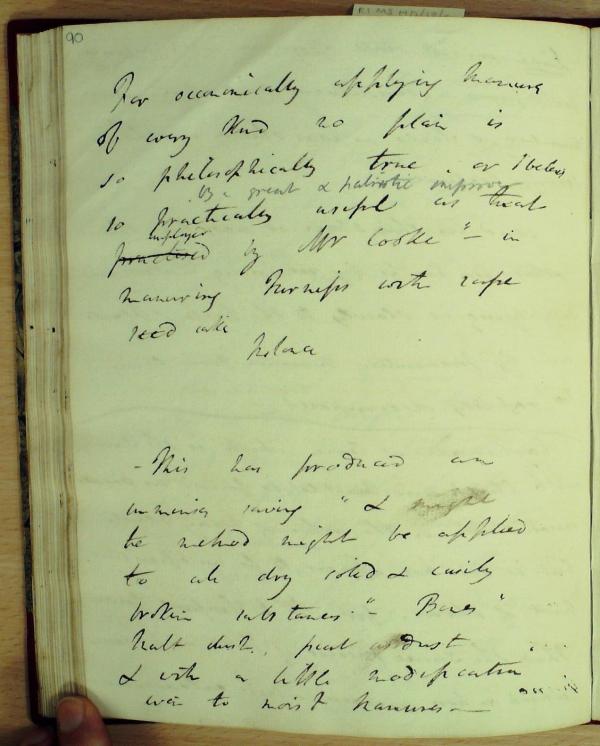 90
For oeconomically applying Manure
of every Kind no plan is
so philosophically true, or I believe
by a great & patriotic improver
so practically useful as that
employed
practised by Mr Cooke "– in
manuring Turnips with rape
seed cake
- This has produced an
immense saving " & might
the method might be applied
to all dry solid & easily
broken substances. "– Bones "
Malt dust, peat dust
& with a little modification
even to moist Manures –